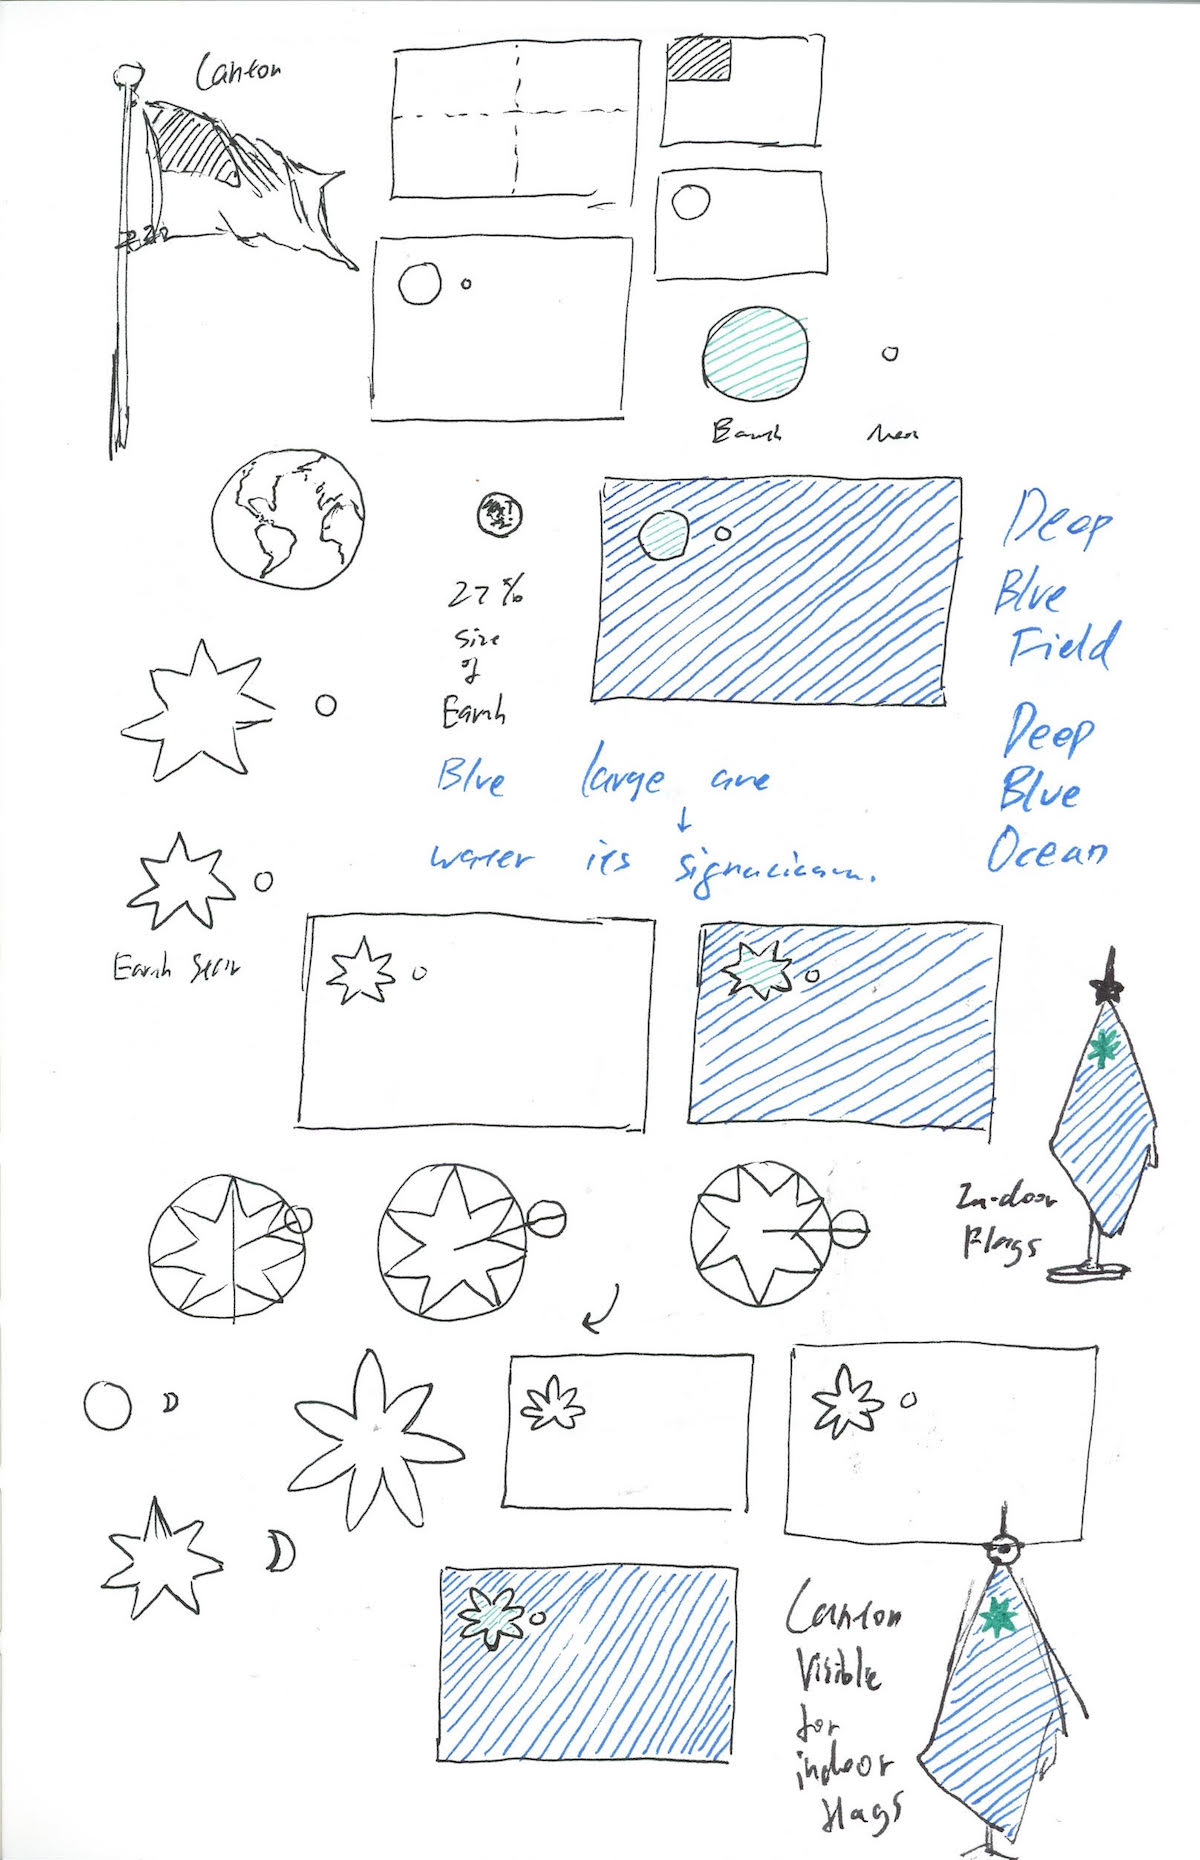 Canton
Earth
Moon
27%
size
of
Earth
Deep
Blue
Field
Deep
Blue
Ocean
Blue large are
water its
Earth Star
In-door
Flags
Canton
Visible
for
indoor
flags